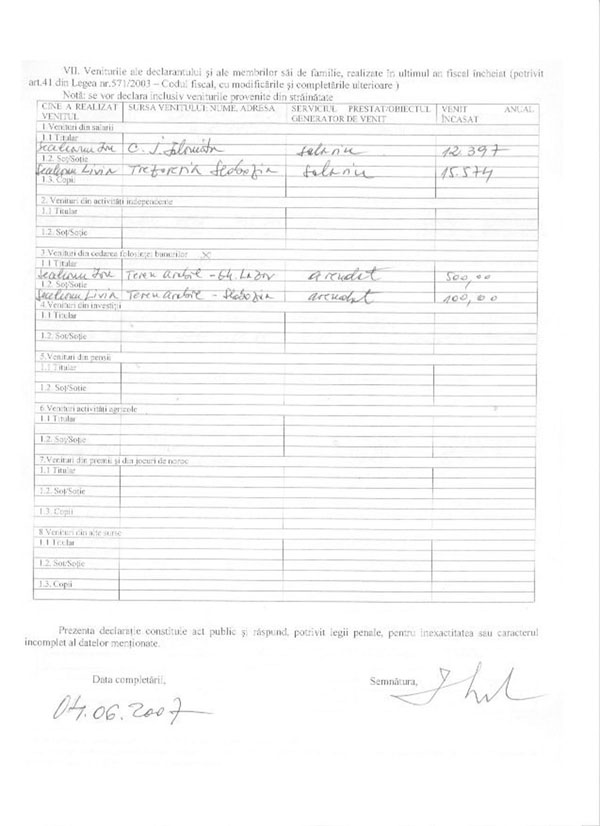 VII. Veniturile ale declarantului și ale membrilor săi de familie, realizate în ultimul an fiscal încheiat (potrivit
art.41 din Legea nr.571/2003 – Codul fiscal, cu modificările și completările ulterioare )
Notă: se vor declara inclusiv veniturile provenite din străinătate
CINE A REALIZAT VENITUL SURSA VENITULUI: NUME, ADRESA SERVICIUL PRESTAT/OBIECTUL GENERATOR DE VENIT VENIT ANUAL ÎNCASAT
1.Venituri din salarii
1.1 Titular
C. J. Ialomița salariu 12 397
1.2. Soț/Soție
Livia Trezoreria Slobozia salariu 15.574
1.3. Copii
2. Venituri din activități independente
1.1 Titular
1.2. Soț/Soție
3.Venituri din cedarea folosinței bunurilor x
1.1 Titular
Teren arabil – Gh. Lazăr arendat 500,00
1.2. Soț/Soție
Livia Teren arabil – Slobozia arendat 100,00
4.Venituri din investiții
1.1 Titular
1.2. Soț/Soție
5.Venituri din pensii
1.1 Titular
1.2. Soț/Soție
6.Venituri activități agricole
1.1 Titular
1.2. Soț/Soție
7.Venituri din premii și din jocuri de noroc
1.1 Titular
1.2. Soț/Soție
1.3. Copii
8.Venituri din alte surse
1.1 Titular
1.2. Soț/Soție
1.3. Copii
Prezenta declarație constituie act public și răspund, potrivit legii penale, pentru inexactitatea sau caracterul
incomplet al datelor menționate.
Data completării, Semnătura,
04.06.2007